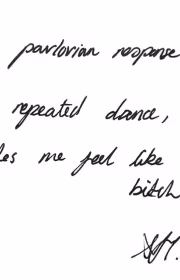 pavlovian response
repeated dance,
es me feel like
bitch